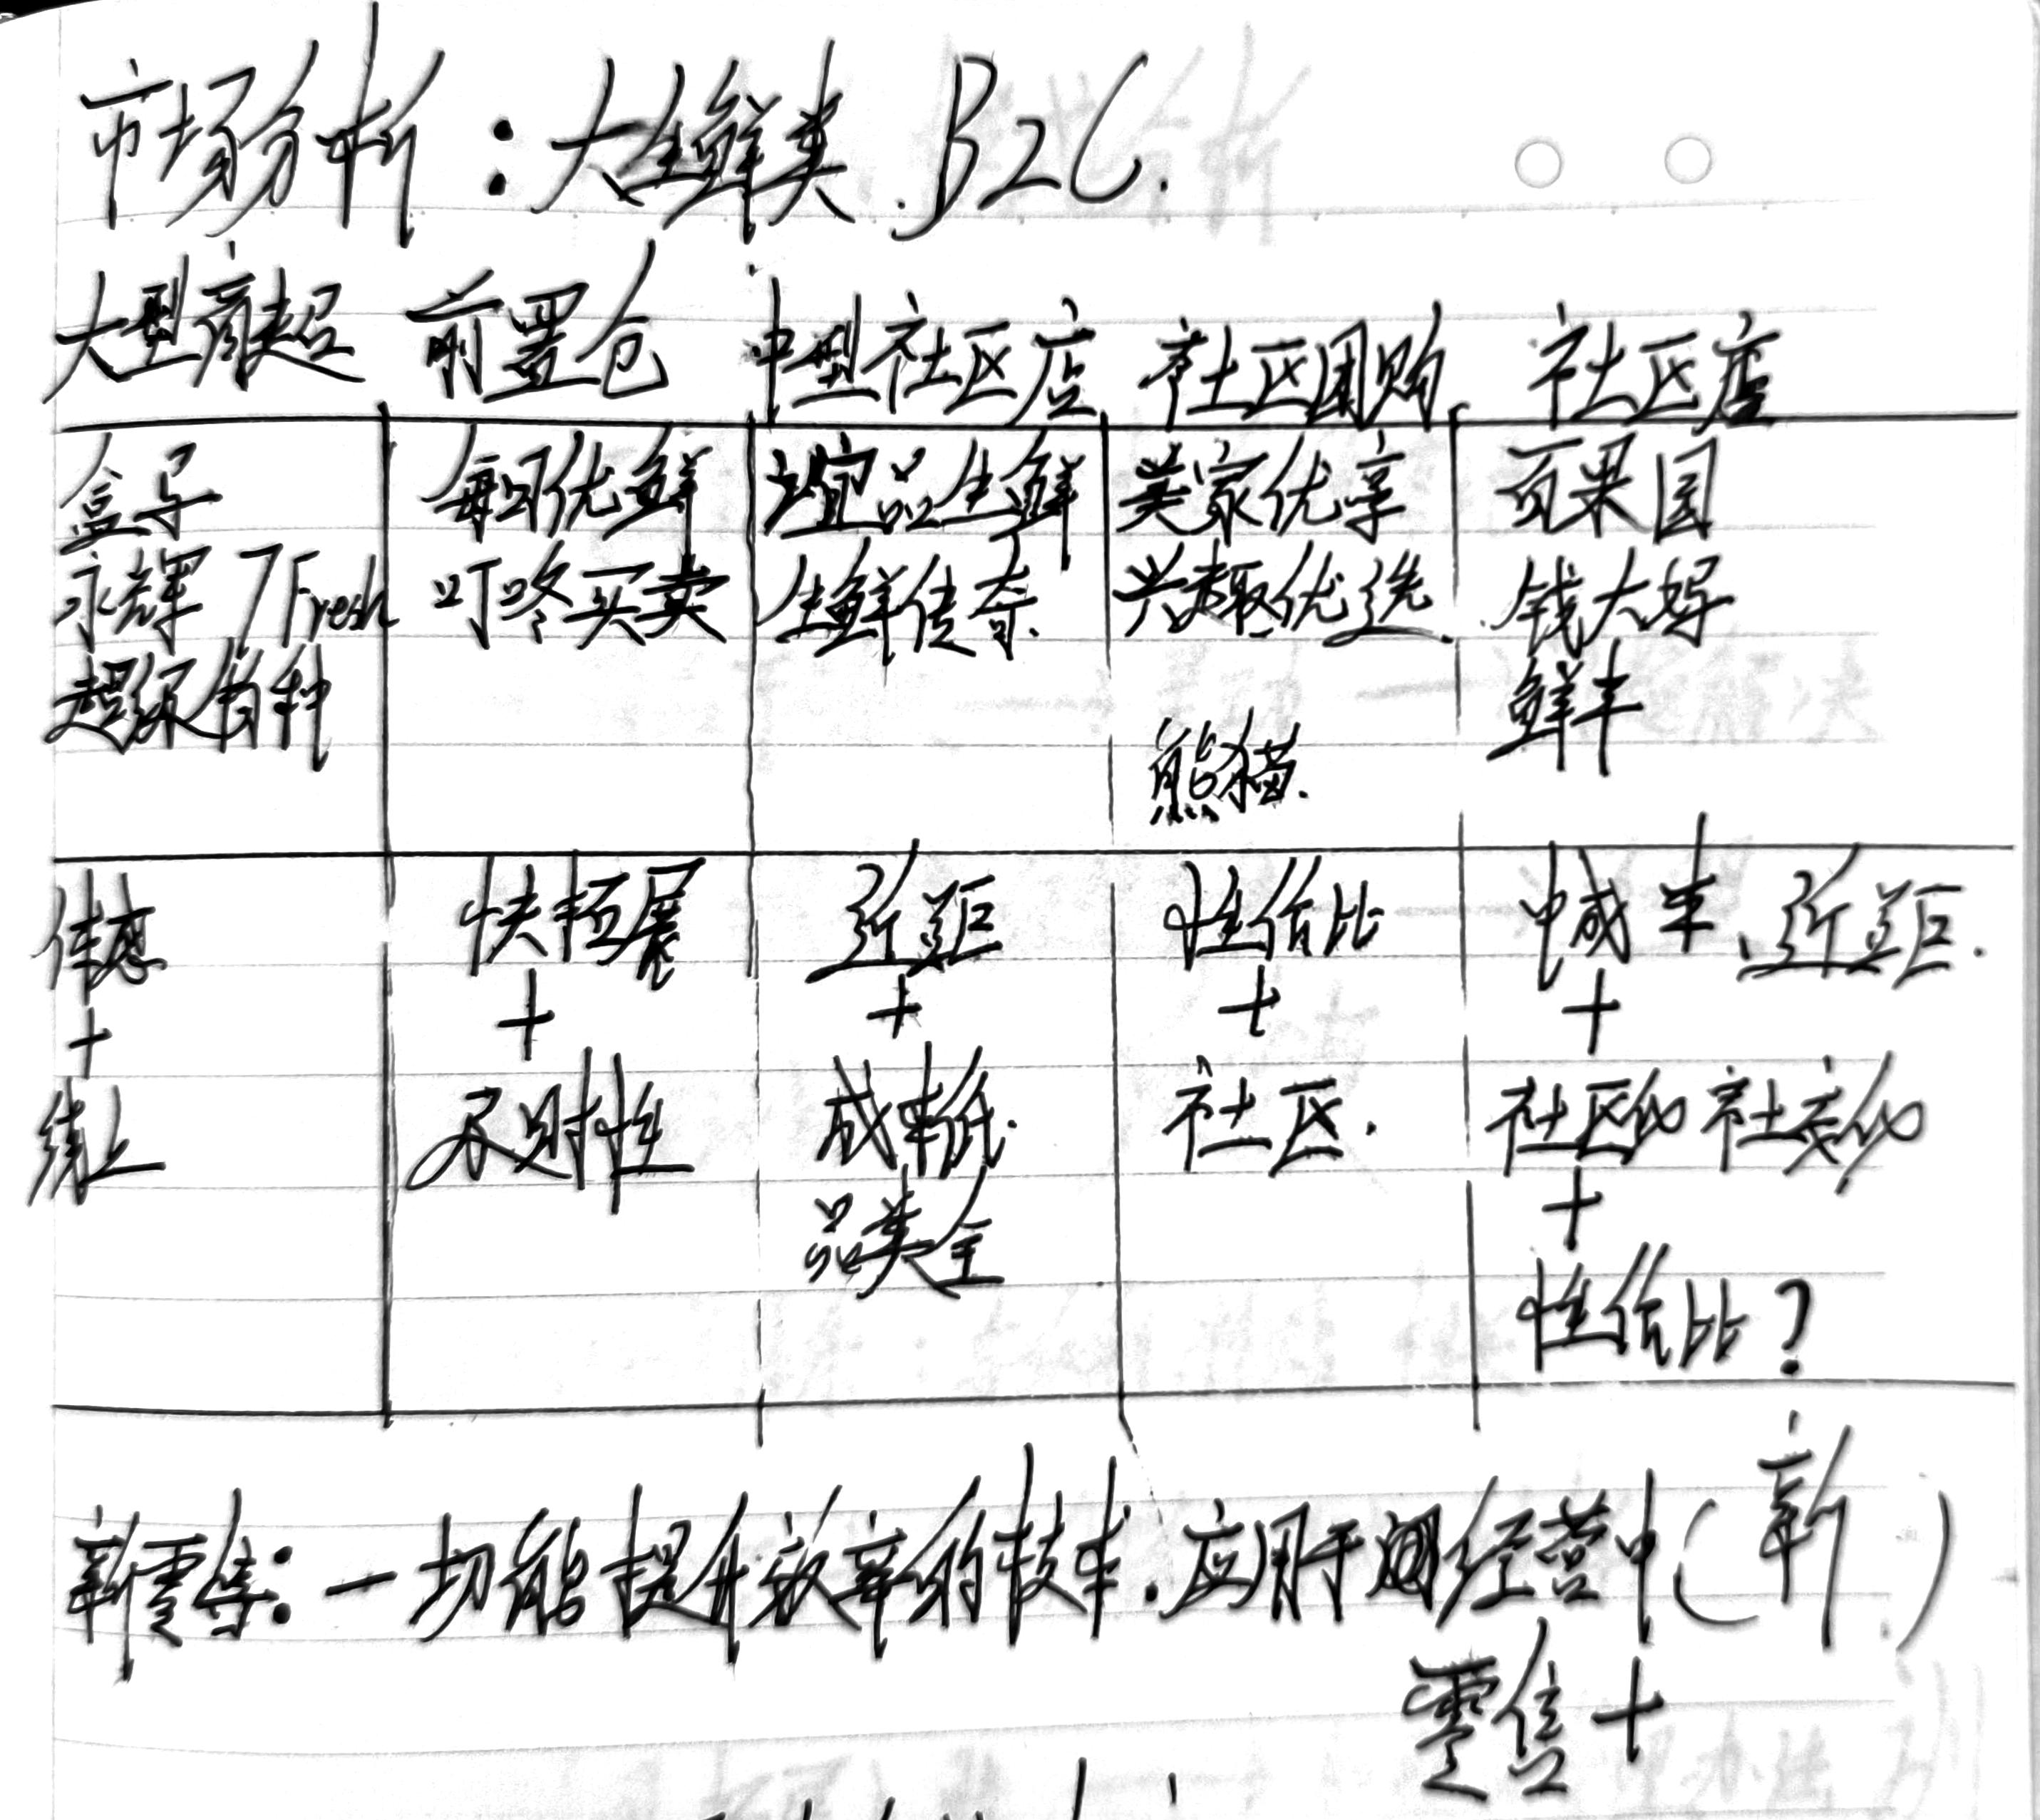 市场分析：大生鲜类.B2C.
大型商超 前置仓 中型社区店 社区团购 社区店
盒马 每日优鲜 谊品生鲜 美家优享 百果园
永辉 7Fresh 叮咚买卖 生鲜传奇. 兴趣优选. 钱大妈
超级物种 鲜丰
熊猫.
体感 快拓展 近距 性价比 成本、近距.
+ + + + +
线上 及时性 成本低. 社区. 社区化 社交化
品类全 +
性价比？
新零售：一切能提升效率的技术.应用于 经营中（新）
零售+